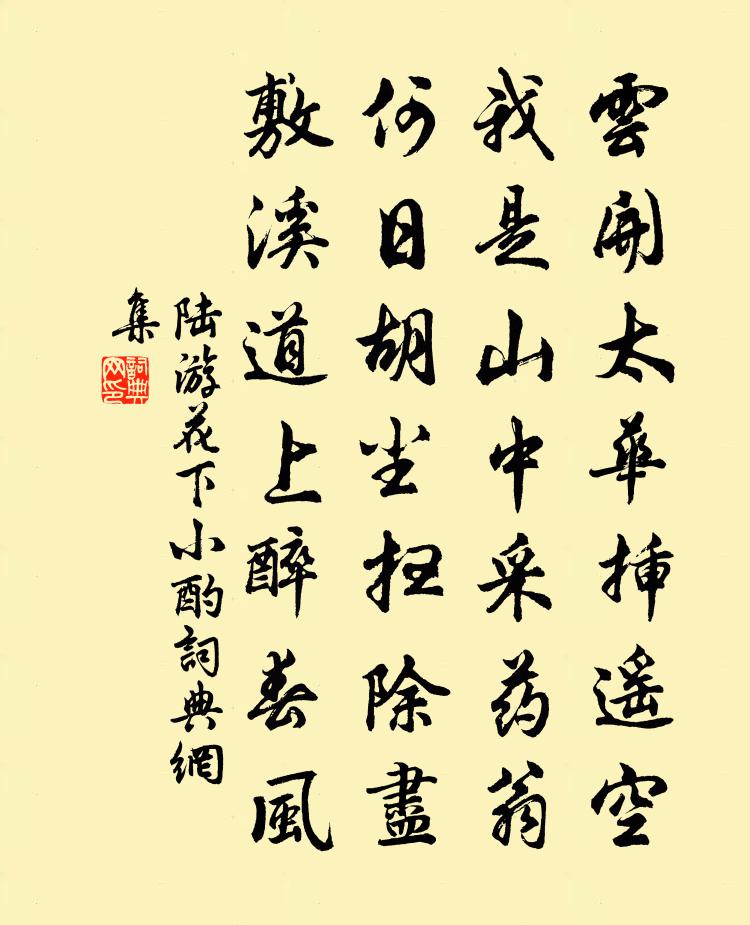 雲開太華插遥空
我是山中采药翁
何日胡尘扫除盡
敷溪道上醉春風
陆游花下小酌詞典網
集
詞典
网印